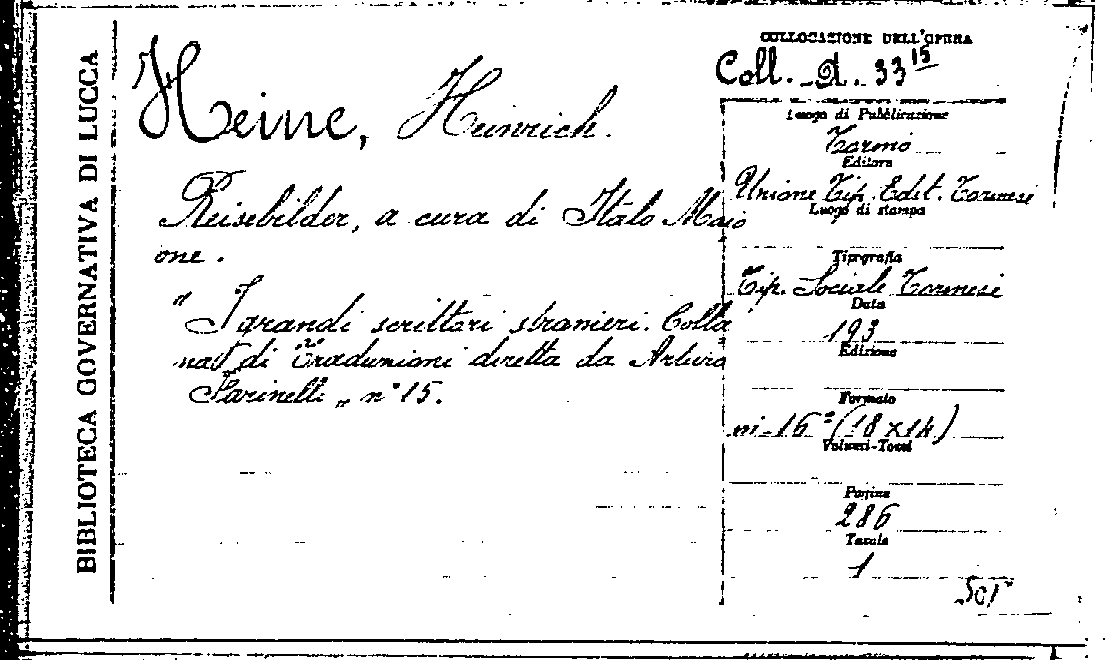 BIBLIOTECA GOVERNATIVA DI LUCCA
Heine, Heinrich.
Reisebilder, a cura di Italo Maio
one.
"I grandi scrittori stranieri. Colla
na di Traduzioni diretta da Arturo
Farinelli" n° 15.
COLLOCAZIONE DELL'OPERA
Coll. A. 33 15
Luogo di Pubblicazione
Torino
Editore
Unione Tip. Edit. Torinese
Luogo di stampa
Tipografia
Tip. Sociale Torinese
Data
193
Edizione
Formato
in-16° (18x14)
Volumi-Tomi
Pagine
286
Tavole
1